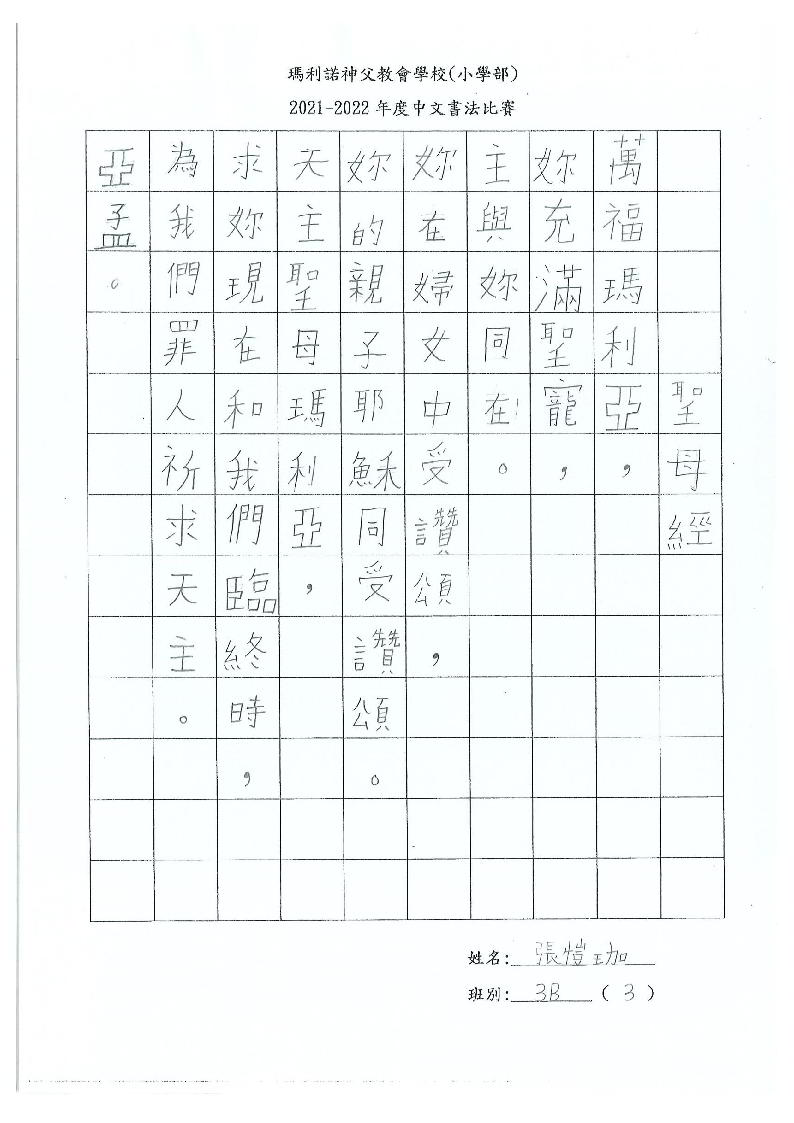 瑪利諾神父教會學校(小學部)
2021-2022 年度中文書法比賽
聖母經
萬福瑪利亞,
妳充滿聖寵,
主與妳同在。
妳在婦女中受讚頌,
妳的親子耶穌同受讚頌。
天主聖母瑪利亞,
求妳現在和我們臨終時,
為我們罪人祈求天主。
亞孟。
姓名:張愷珈
班別:3B(3)